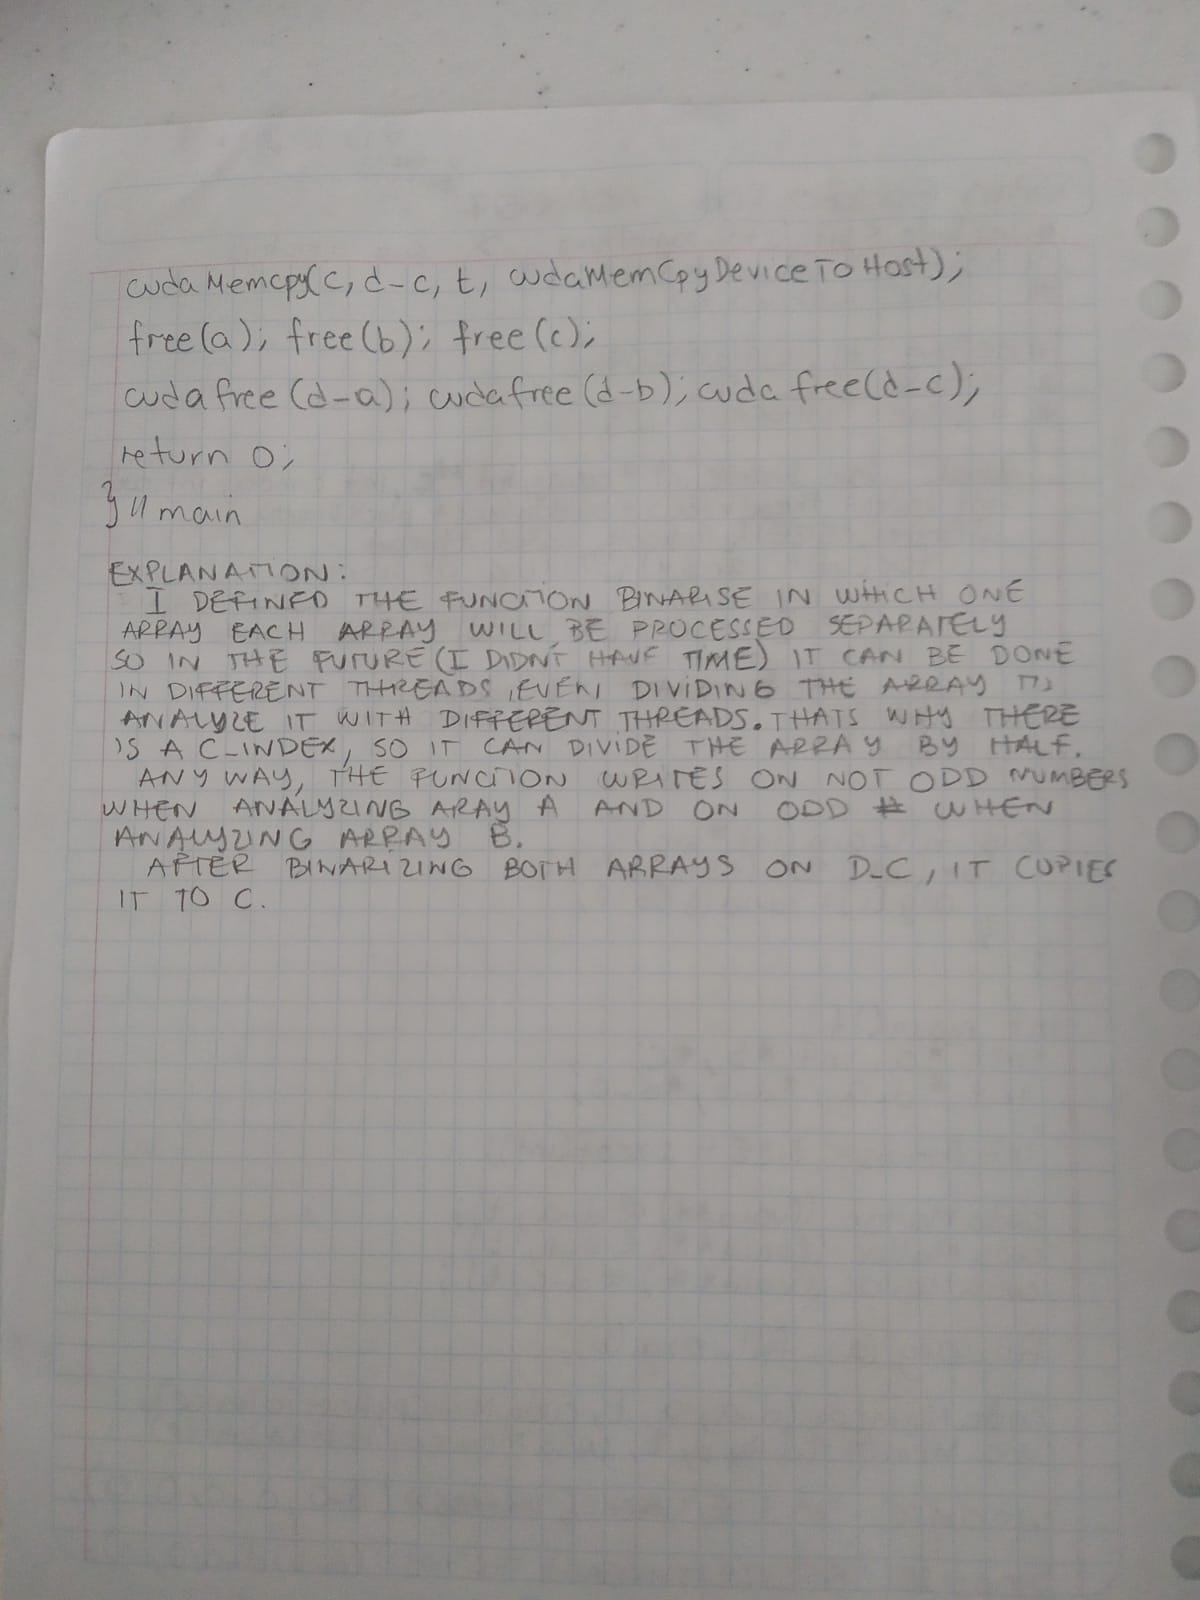 cudaMemcpy(c, d-c, t, cudaMemCpyDeviceToHost);
free(a); free(b); free(c);
cudafree(d-a); cudafree(d-b); cudafree(d-c);
return 0;
} // main
EXPLANATION:
I DEFINED THE FUNCTION BINARISE IN WHICH ONE
ARRAY EACH ARRAY WILL BE PROCESSED SEPARATELY
SO IN THE FUTURE (I DIDN'T HAVE TIME) IT CAN BE DONE
IN DIFFERENT THREADS, EVEN DIVIDING THE ARRAY TO
ANALYZE IT WITH DIFFERENT THREADS. THATS WHY THERE
IS A C_INDEX, SO IT CAN DIVIDE THE ARRAY BY HALF.
ANY WAY, THE FUNCTION WRITES ON NOT ODD NUMBERS
WHEN ANALYZING ARAY A AND ON ODD # WHEN
ANALYZING ARRAY B.
AFTER BINARIZING BOTH ARRAYS ON D_C, IT COPIES
IT TO C.